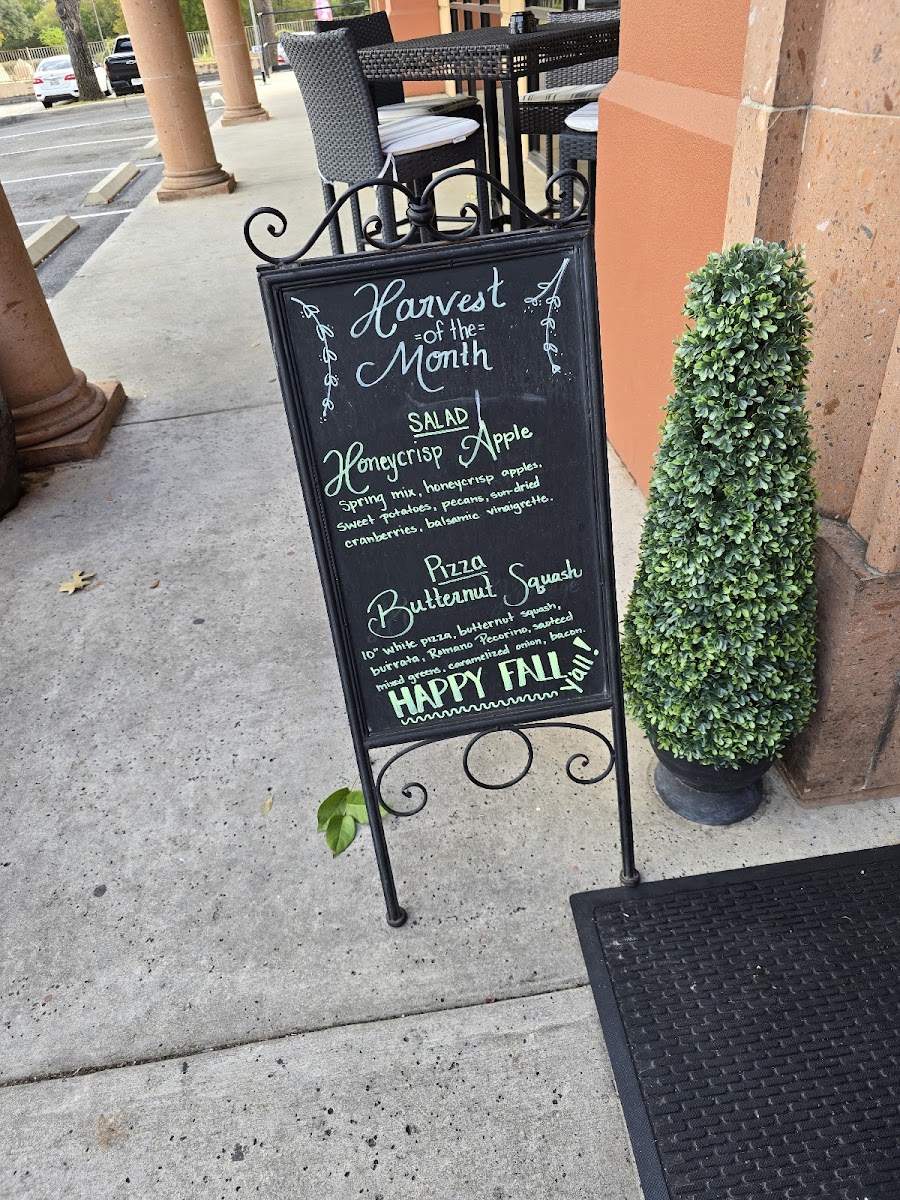 Harvest
=of the=
Month
SALAD
Honeycrisp Apple
Spring mix, honeycrisp apples,
sweet potatoes, pecans, sun-dried
cranberries, balsamic vinaigrette.
Pizza
Butternut Squash
10" white pizza, butternut squash,
burrata, Romano Pecorino, sauteed
mixed greens, caramelized onion, bacon.
HAPPY FALL
y'all!